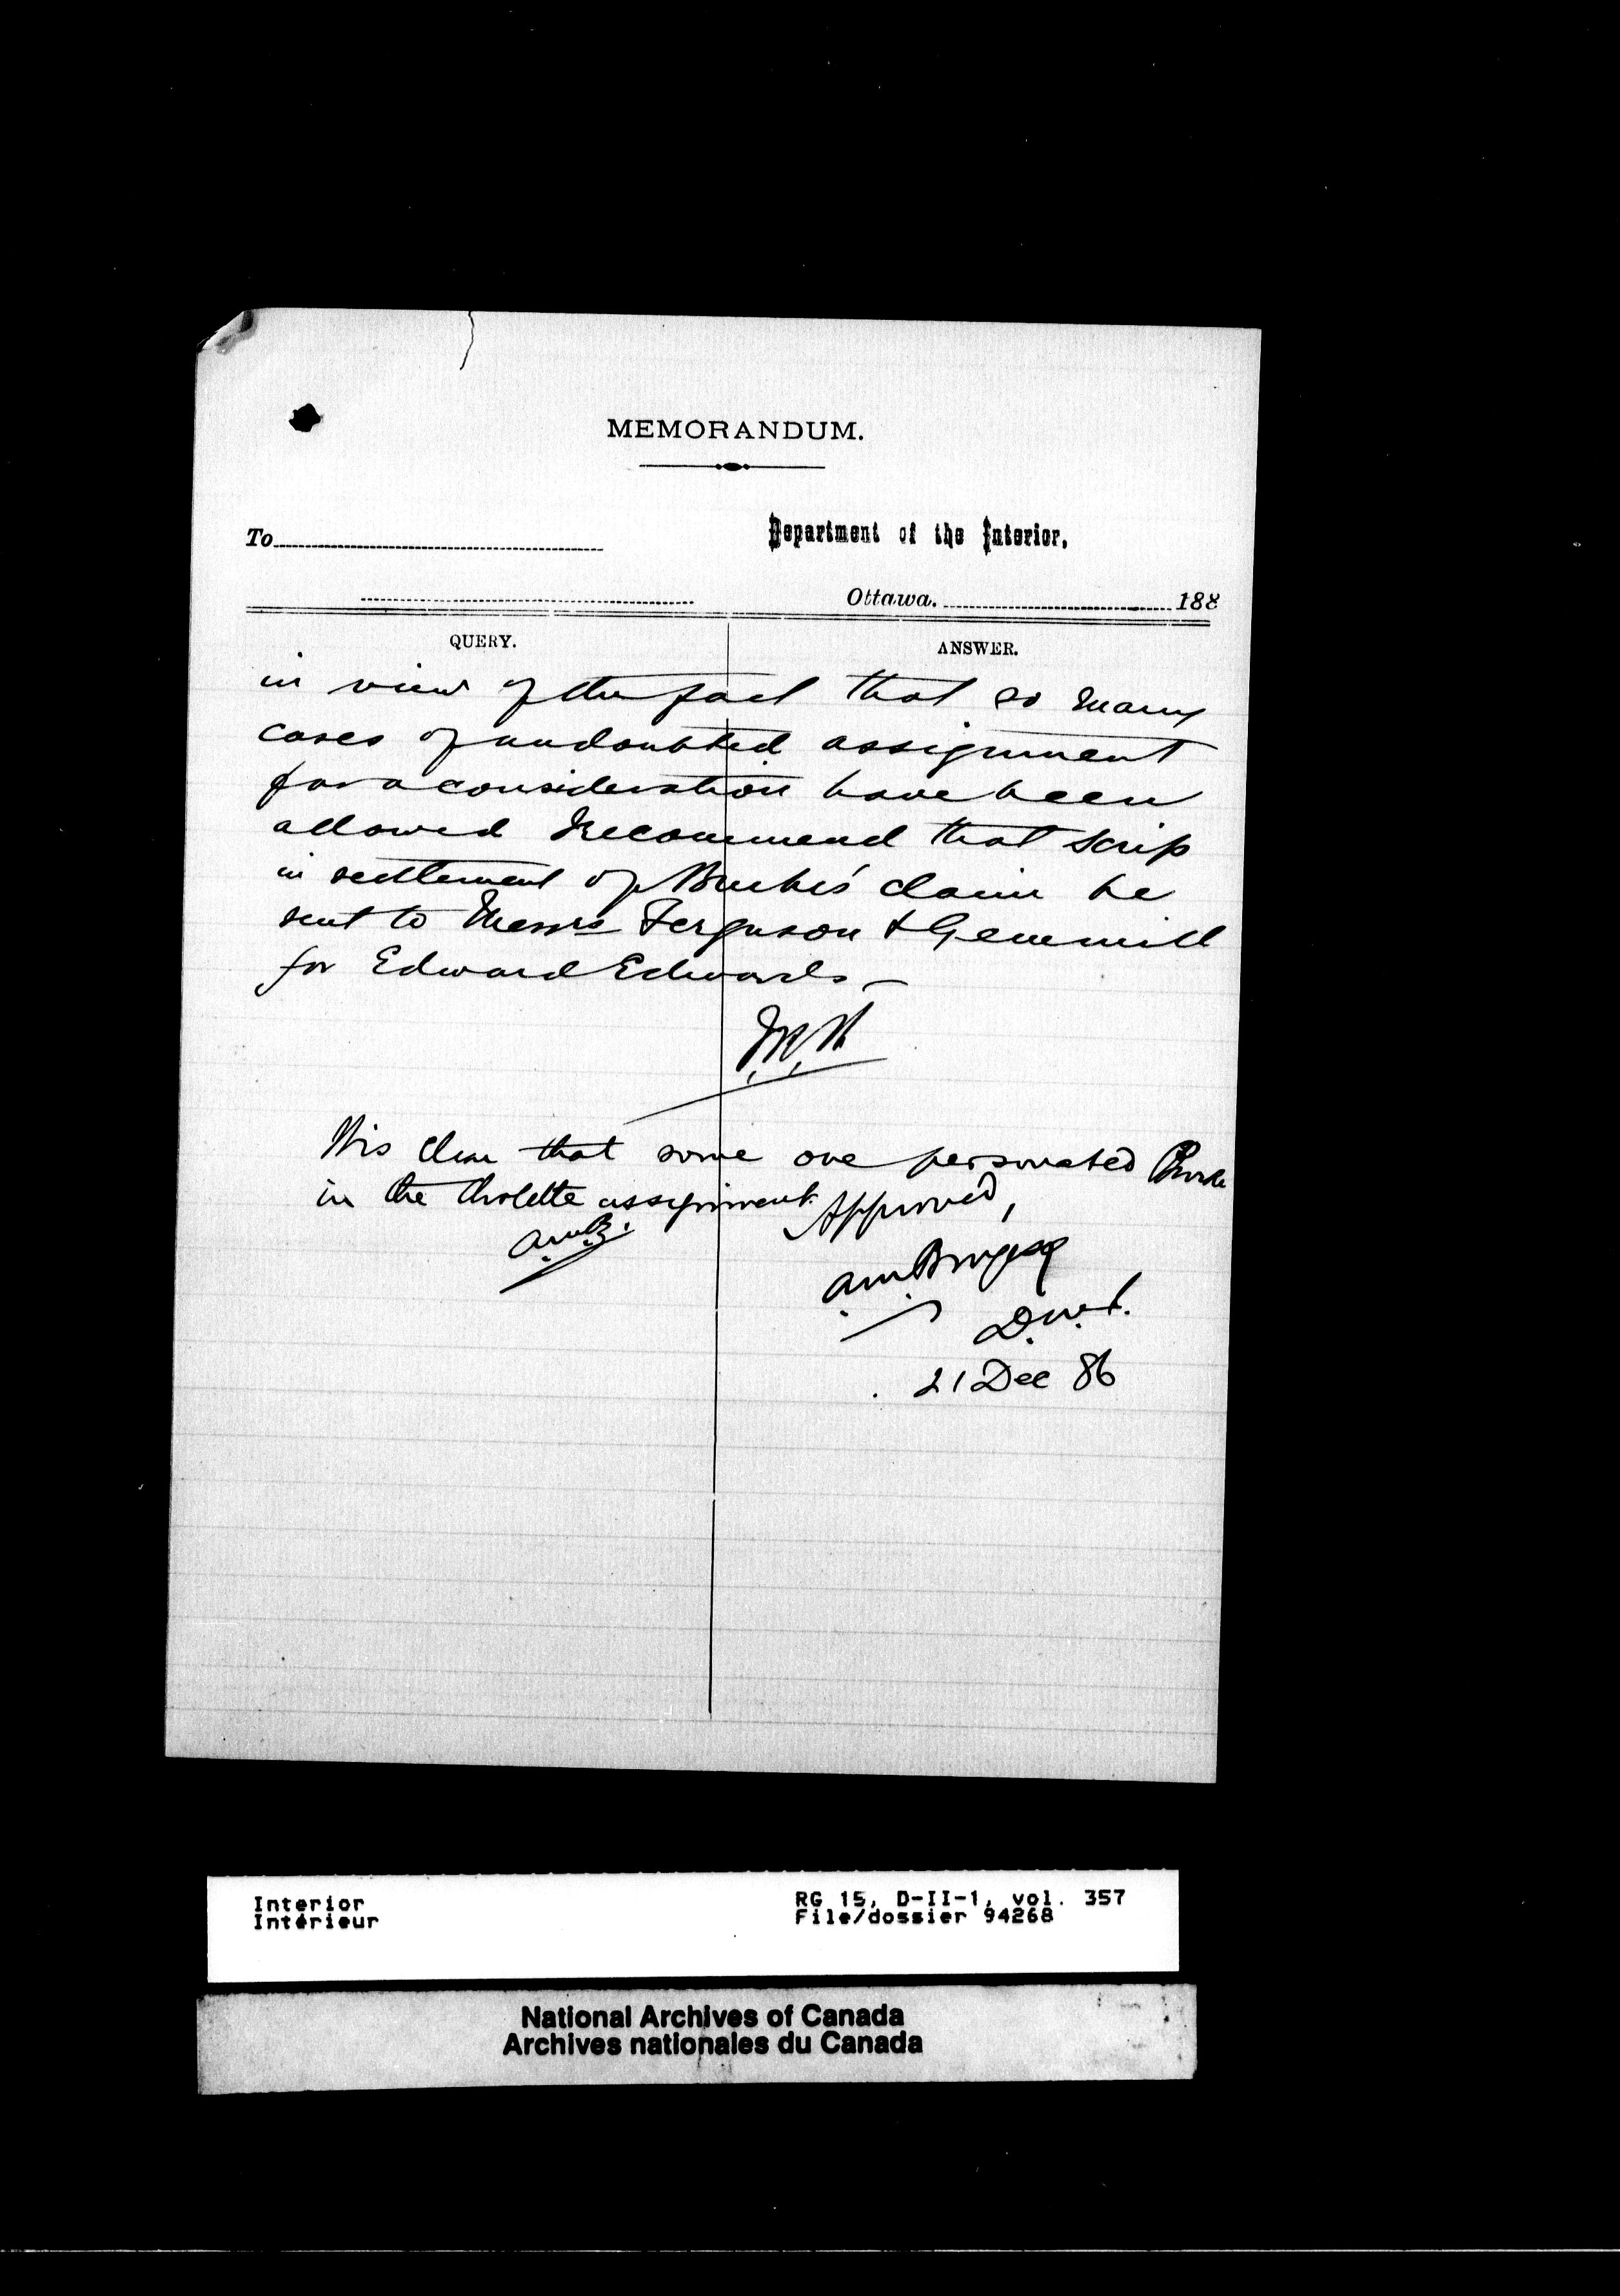 MEMORANDUM.
To
Department of the Interior,
Ottawa. 188
QUERY.
ANSWER.
in view of the fact that so many
cases of undoubted assignment
for a consideration have been
allowed I recommend that scrip
in settlement of Burke's claim be
sent to Messrs Ferguson & Gemmill
for Edward Edwards —
It is clear that some one personated Burke
in the assignment.
A.M.B.
Approved,
A.M. Burgess
D.M.I.
21 Dec 86
Interior
Intérieur
RG 15, D-II-1, vol. 357
File/dossier 94268
National Archives of Canada
Archives nationales du Canada